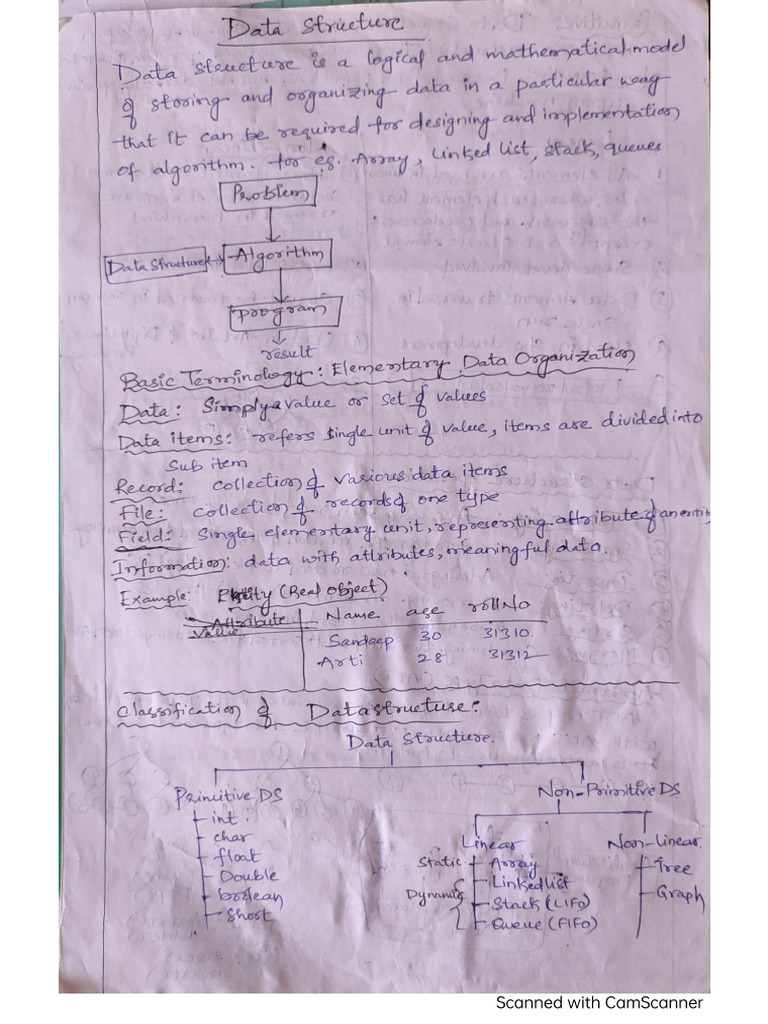 Data Structure
Data structure is a logical and mathematical model
of storing and organizing data in a particular way
that it can be required for designing and implementation
of algorithm. for eg. Array, Linked list, stack, queues
Problem
Data Structure → Algorithm
Program
result
Basic Terminology: Elementary Data Organization
Data: Simply a value or set of values
Data items: refers single unit of value, items are divided into
Sub item
Record: collection of various data items
File: collection of records of one type
Field: Single elementary unit, representing attribute of an entity
Information: data with attributes, meaningful data.
Example: Entity (Real Object)
Attribute Name age rollNo
Value Sandeep 30 31310
Arti 28 31312
Classification of Datastructure:
Data Structure
Primitive DS Non-Primitive DS
int
char
float
Double
boolean
Short
Linear Non-linear
Static Array Tree
Linked list
Dynamic Stack (LIFO) Graph
Queue (FIFO)
Scanned with CamScanner